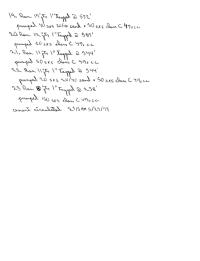 19. Ran 19 jts 1" Tagged @ 592'
pumped 10 sxs 20/40 sand + 50 sxs Class C 4% cc
20. Ran 19 jts 1" Tagged @ 589'
pumped 50 sxs Class C 4% cc
21. Ran 11 jts 1" Tagged @ 344'
pumped 50 sxs Class C 4% cc
22. Ran 11 jts 1" Tagged @ 344'
pumped 20 sxs 20/40 sand + 50 sxs Class C 4% cc
23. Ran jts 1" Tagged @ 238'
pumped 150 sxs Class C 4% cc
cement circulated